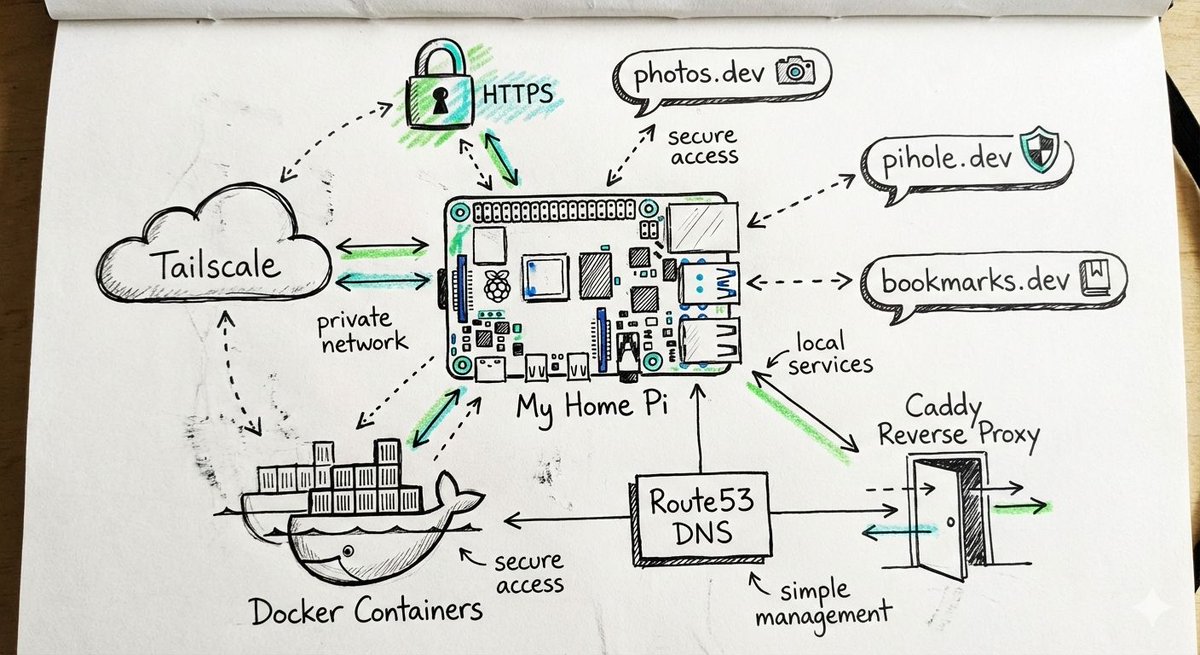 HTTPS
photos.dev
secure
access
pihole.dev
Tailscale
bookmarks.dev
private
network
local
services
My Home Pi
Caddy
Reverse Proxy
Route53
DNS
secure
access
simple
management
Docker Containers